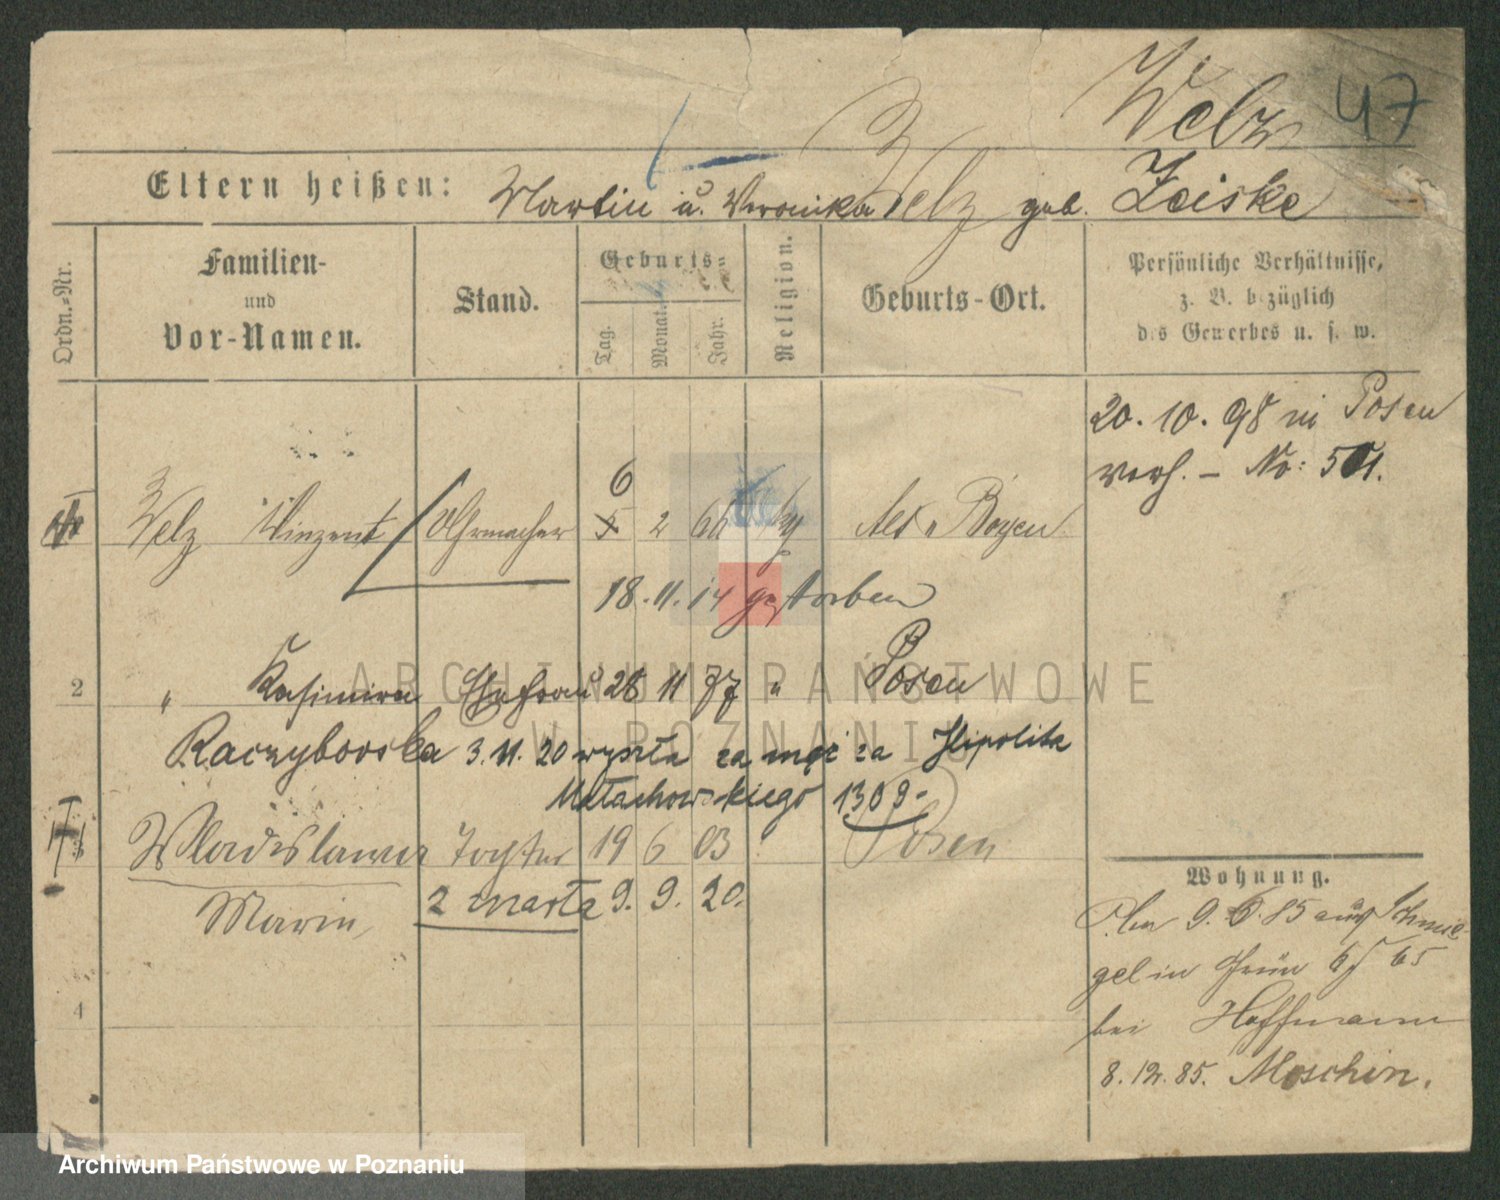 Welz 47
Eltern heißen: Martin u. Veronika Welz geb. Zeiske
Ordn.-Nr.
Familien-
und
Vor-Namen.
Stand.
Geburts-
Tag. Monat. Jahr.
Religion.
Geburts-Ort.
Persönliche Verhältnisse,
z. B. bezüglich
des Gewerbes u. s. w.
20. 10. 98 in Posen
verh. – No: 501.
6
Welz Vinzent Uhrmacher 5 2 66 Alt Boyen
18. 11. 14 gestorben
2 " Kasimira Ehefrau 26 11 77 " Posen
Raczyborska 3. 11. 20 wyszła za mąż za Hipolita
Małachowskiego 1309-
Wladislawa Tochter 19 6 03 Posen
Maria, 2 marła 9. 9. 20.
4
Wohnung.
9. 6. 85 aus Schmie-
gel in Grün 65
bei Hoffmann
8. 12. 85. Moschin.
ARCHIWUM PAŃSTWOWE
W POZNANIU
Archiwum Państwowe w Poznaniu